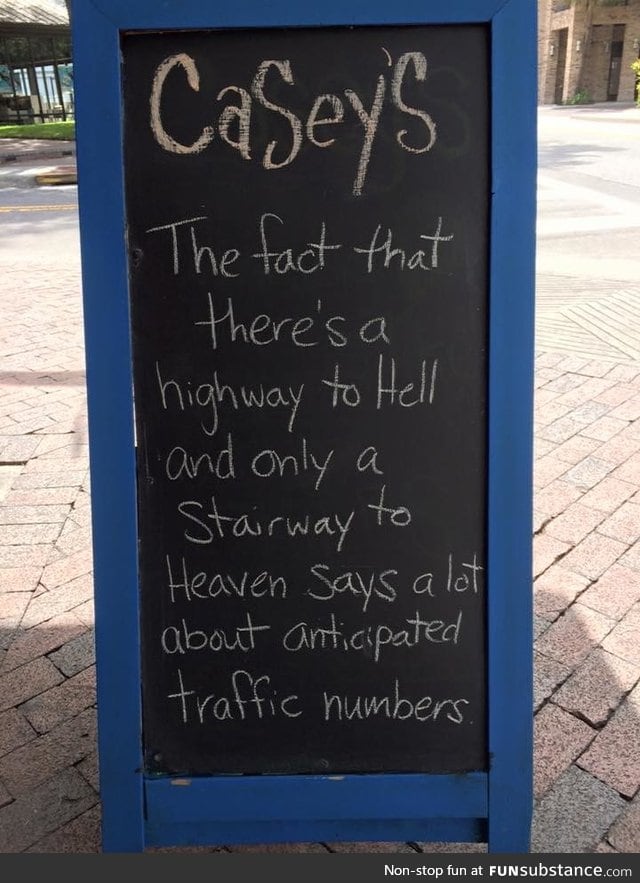 Casey's
The fact that
there's a
highway to Hell
and only a
Stairway to
Heaven says a lot
about anticipated
traffic numbers.
Non-stop fun at FUNsubstance.com